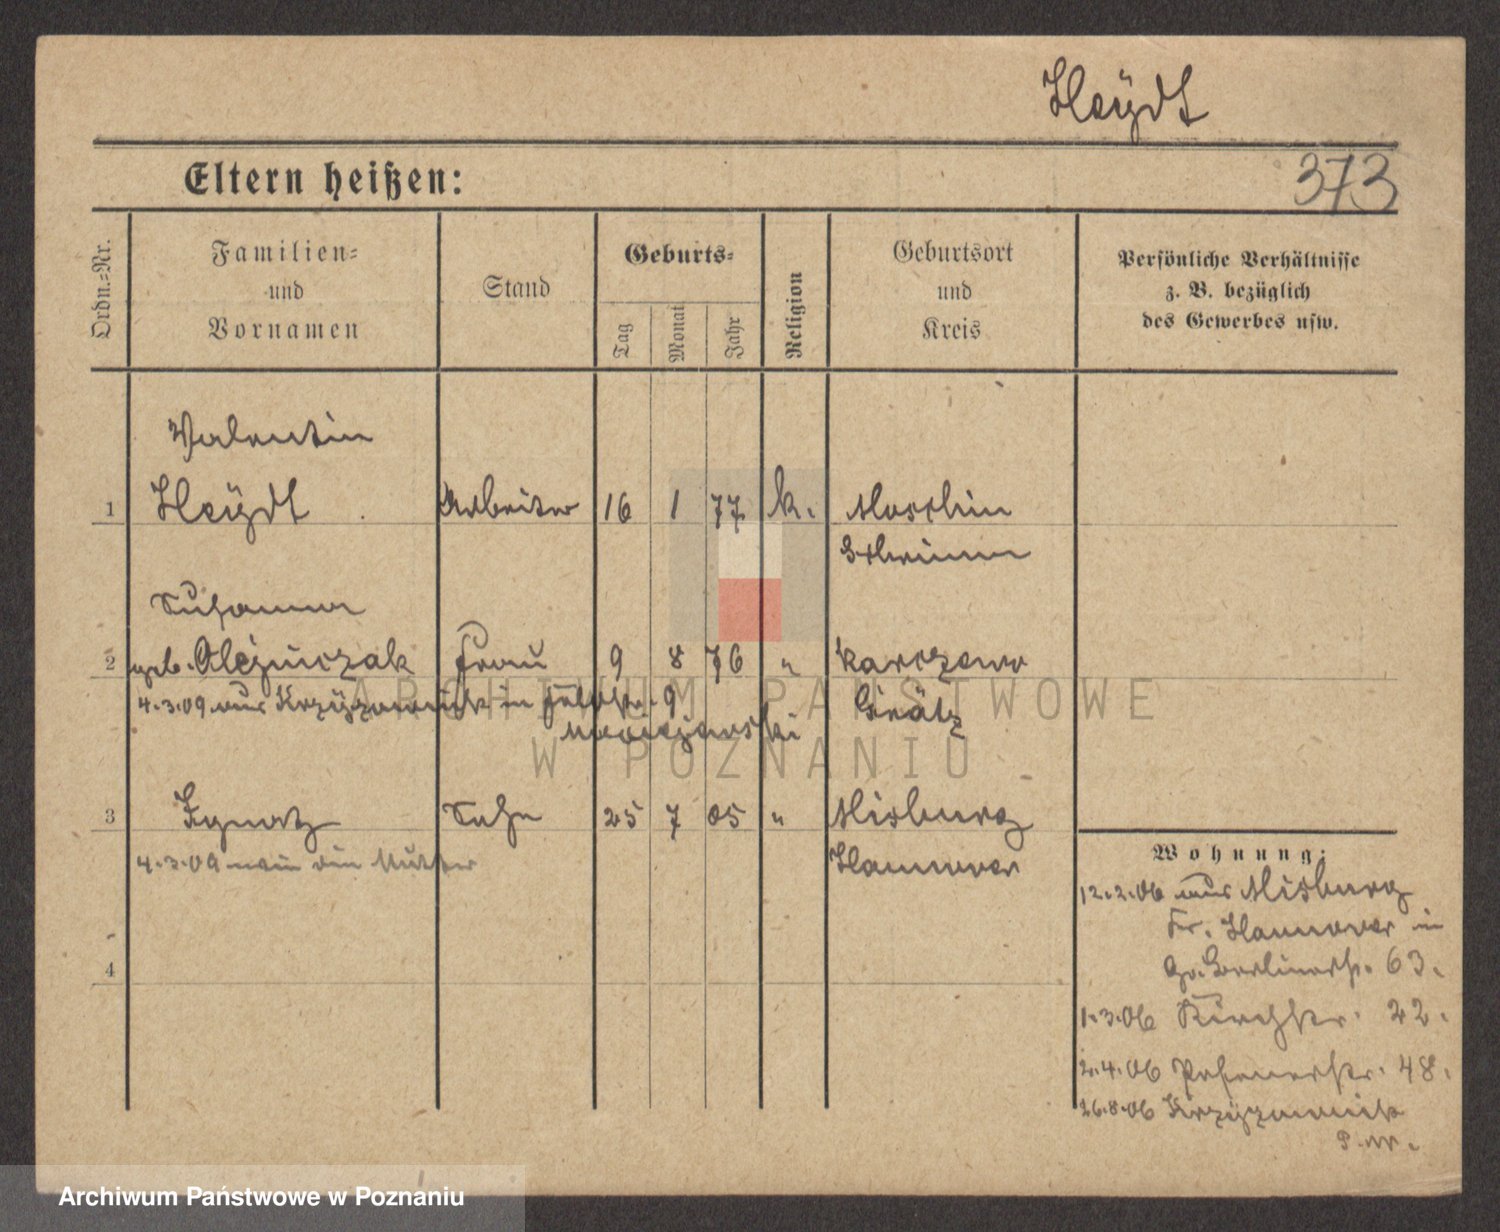 Heÿdt
Eltern heißen:
373
Ordn.-Nr.
Familien-
und
Vornamen
Stand
Geburts-
Tag
Monat
Jahr
Religion
Geburtsort
und
Kreis
Persönliche Verhältnisse
z. B. bezüglich
des Gewerbes usw.
Valentin
1 Heÿdt Arbeiter 16 1 77 k. Moschin
Schrimm
Susanna
2 geb. Olejniczak Frau 9 8 76 " Karczewo
4.3.09 aus Krzyżownik in Feldstr. 9 Grätz
3 Ignatz Sohn 25 7 05 " Misburg
4.3.09 Mutter Hannover
4
Wohnung:
12.2.06 aus Misburg
Kr. Hannover in
Gr. Berlinerstr. 63.
1.3.06 Kirchstr. 22.
2.4.06 Posenerstr. 48.
26.8.06 Krzyżownik
ARCHIWUM PAŃSTWOWE
W POZNANIU
Archiwum Państwowe w Poznaniu